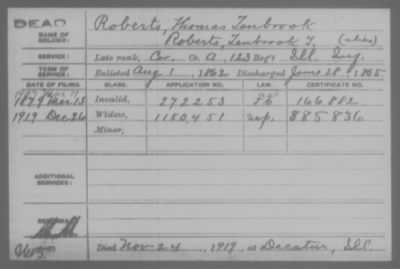 DEAD
Roberts, Thomas Tenbrook
NAME OF SOLDIER:
Roberts, Tenbrook T. (alias)
SERVICE: Late rank, Cor. Co. A, 123 Reg't Ill. Inf.
TERM OF SERVICE: Enlisted Aug 1, 1862 Discharged June 28, 1865
DATE OF FILING. CLASS. APPLICATION NO. LAW. CERTIFICATE NO.
1879 Mar 13 Invalid, 272253 166.882
1919 Dec 26 Widow, 1150451 885836
Minor,
ADDITIONAL SERVICES:
Died Nov 24, 1919, at Decatur, Ill.